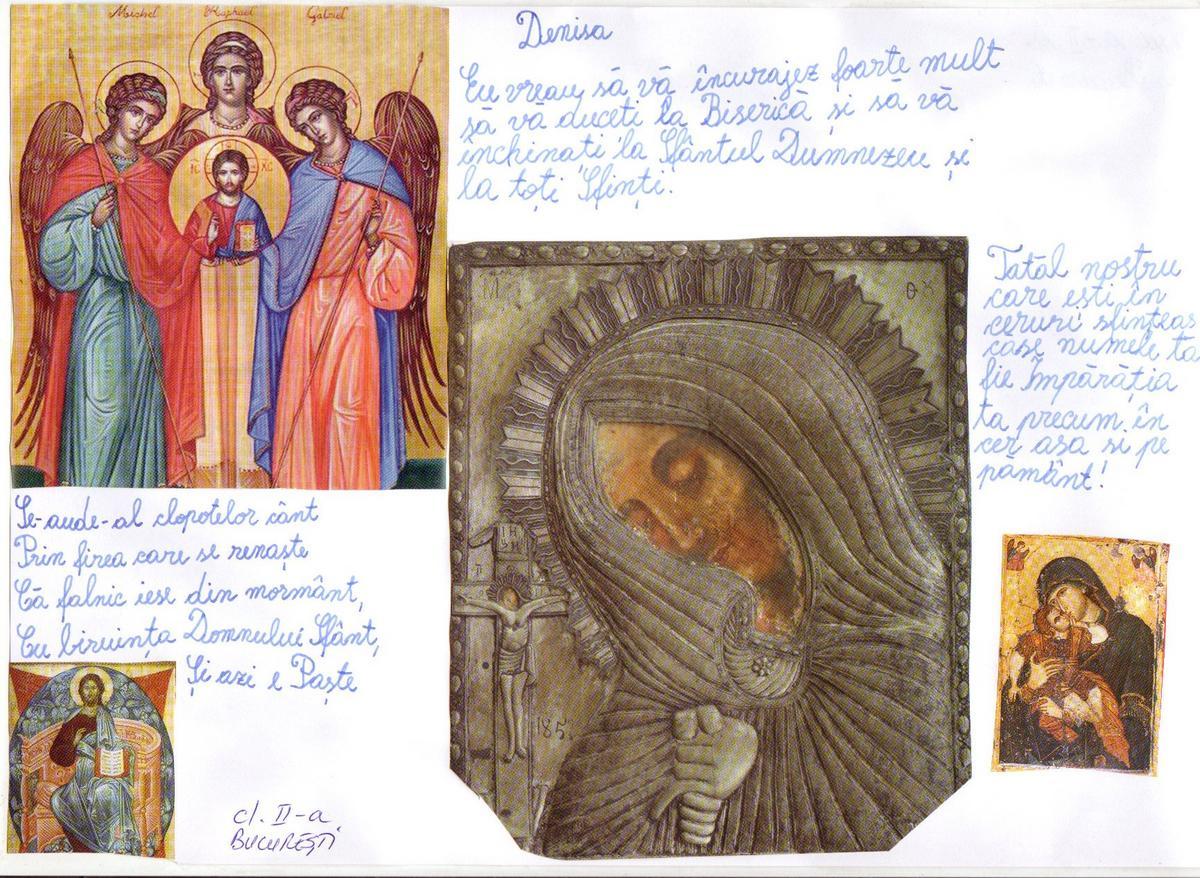 Michel Raphael Gabriel
IC XC
Denisa
Eu vreau să vă încurajez foarte mult
să vă duceti la Biserică și să vă
închinati la Sfântul Dumnezeu și
la toți Sfinți.
Tatăl nostru
care ești în
ceruri sfințeas
case numele ta
fie Împărăția
ta precum în
cer asa si pe
pământ!
Se-aude-al clopotelor cânt
Prin firea care se renaște
Că falnic iese din mormânt,
Cu biruința Domnului Sfânt,
Și azi e Paște
cl. II-a
BUCUREȘTI
M
Θ Υ
185